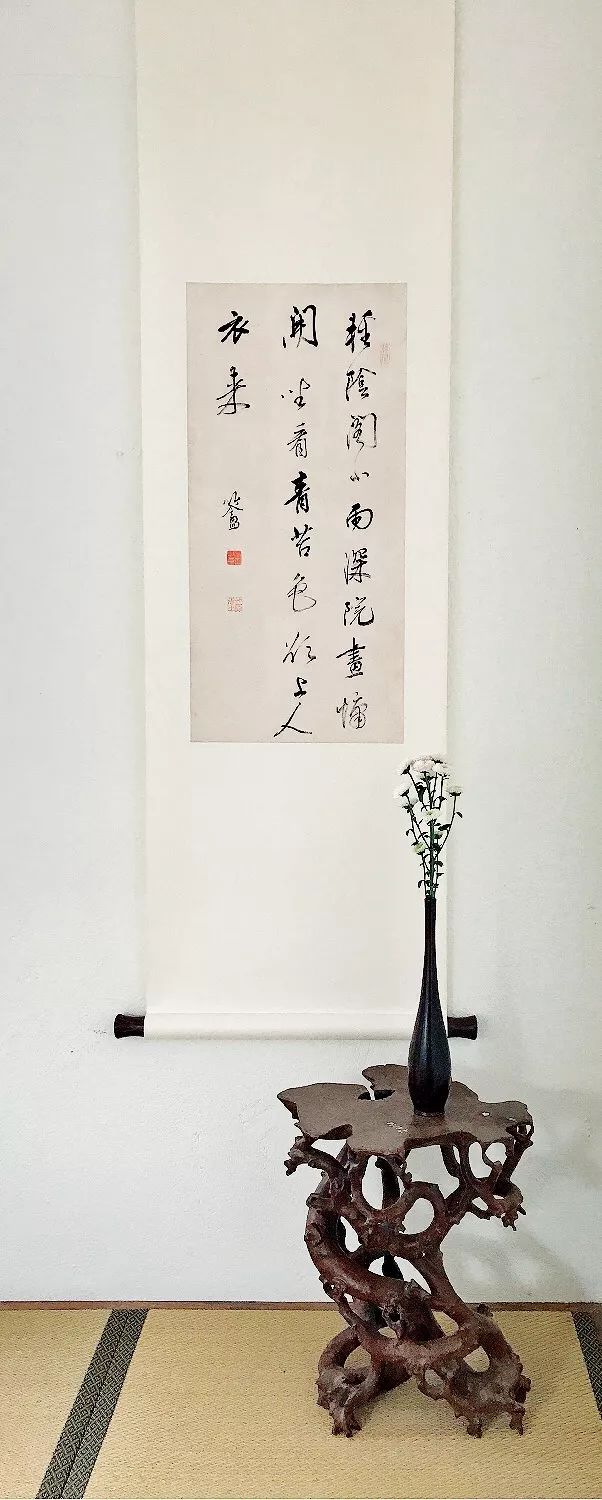 輕陰閣小雨深院晝慵
開坐看青苔色欲上人
衣來